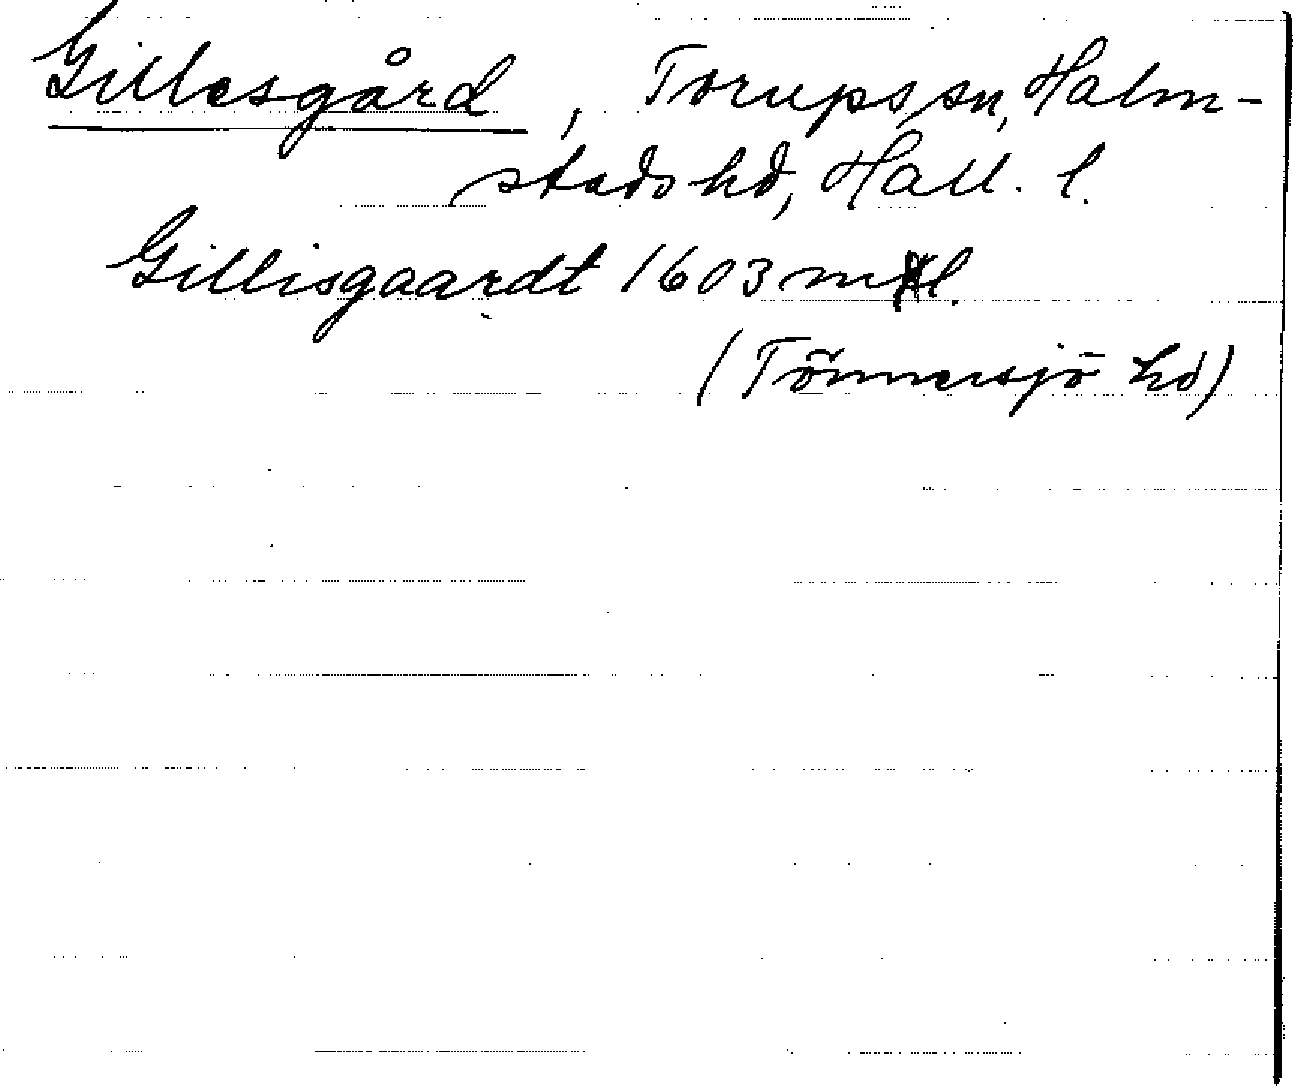 Gillesgård, Torups sn, Halm-
stads hd, Hall. l.
Gillisgaardt 1603 ml.
(Tönnersjö hd)